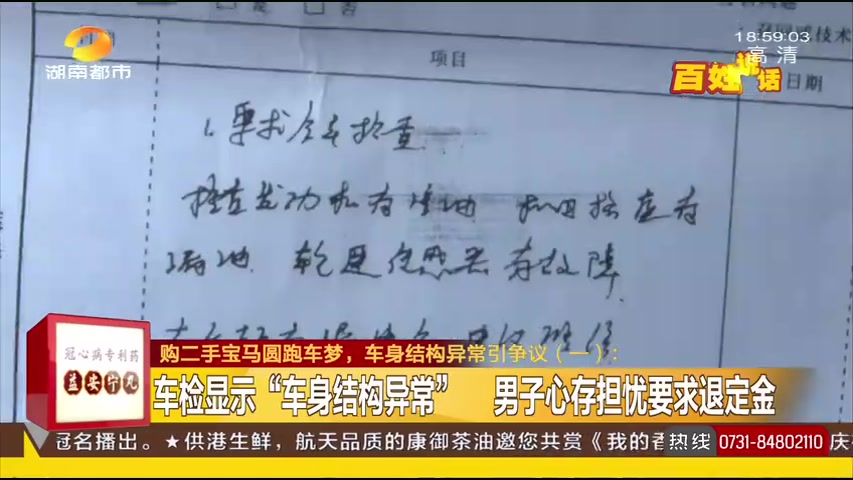 是 否
18:59:03
高清
技术
湖南都市
项目
百姓说话
日期
1、要求全车检查
检查发动机有渗油 机油格座有
漏油 轮速传感器有故障
冠心病专利药
益安宁丸
购二手宝马圆跑车梦，车身结构异常引争议（一）：
车检显示“车身结构异常” 男子心存担忧要求退定金
冠名播出。★供港生鲜，航天品质的康御茶油邀您共赏《我的香
热线 0731-84802110
庆